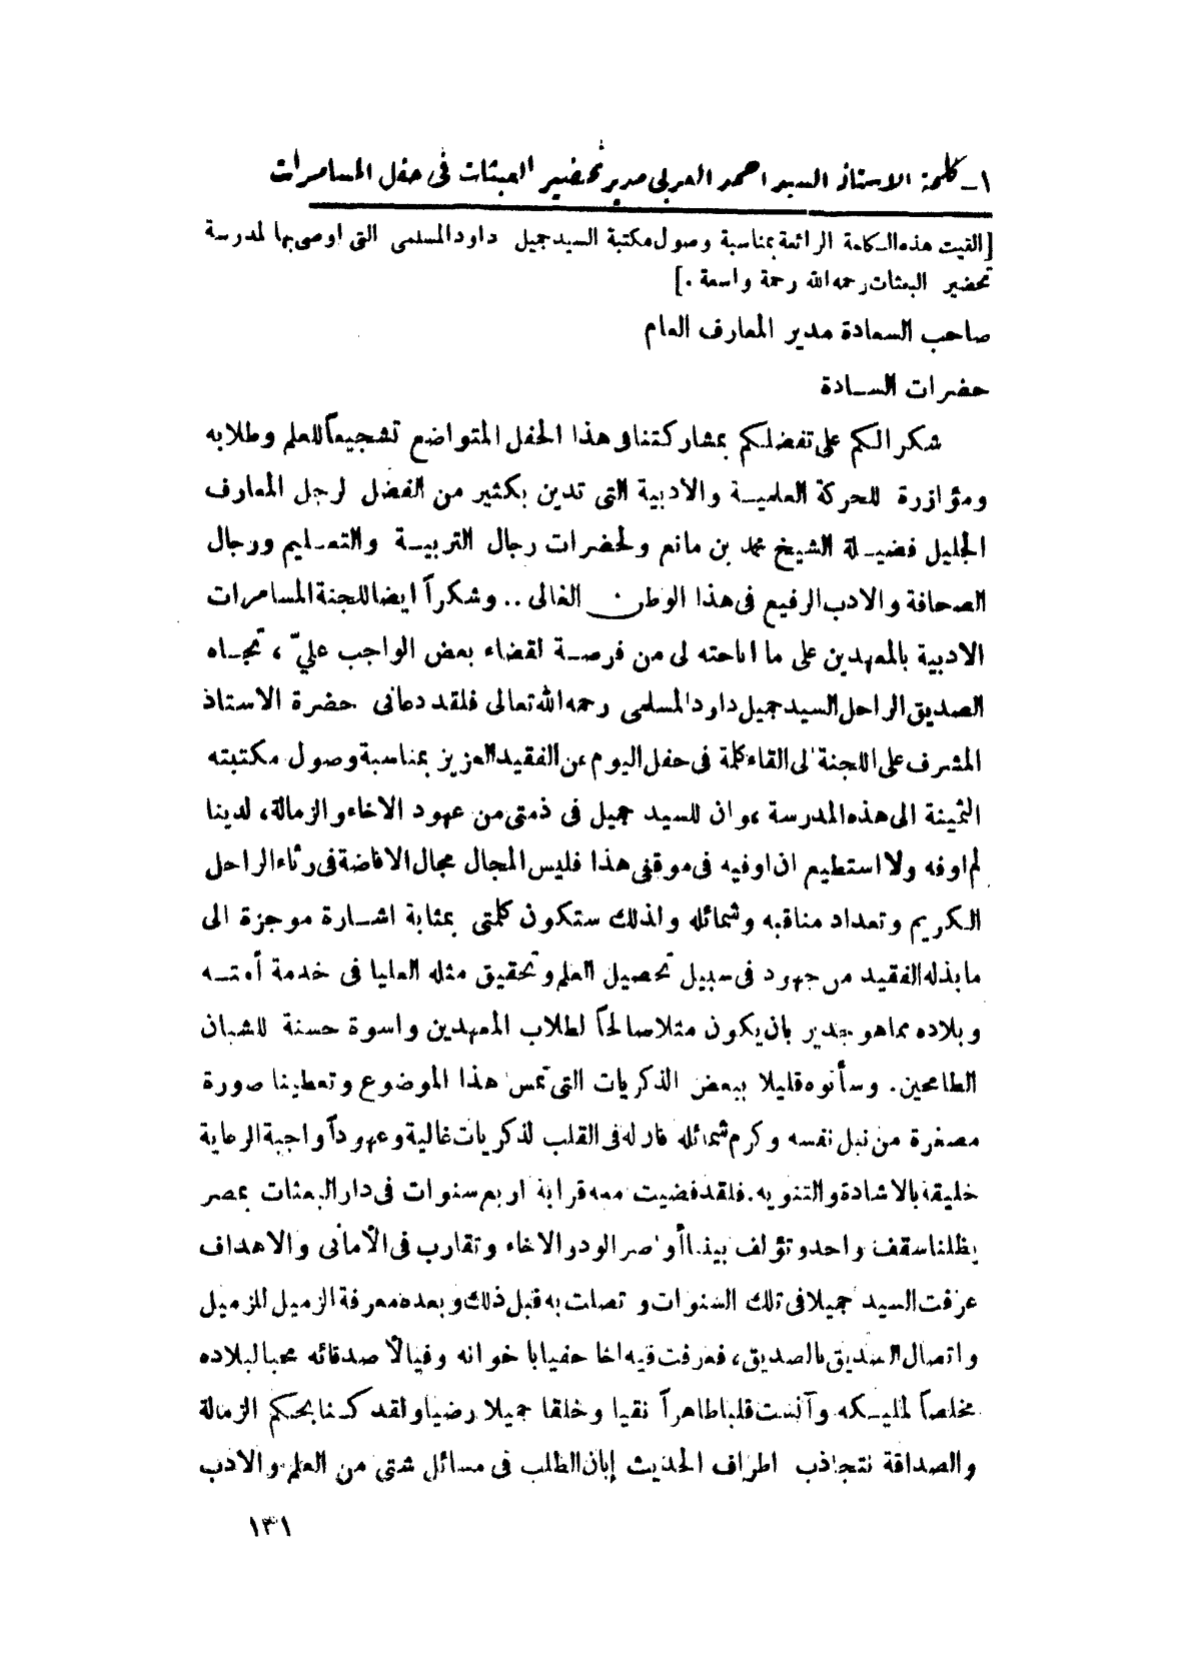 ١ـ كلمة الاستاذ السيد احمد العربي مدير تحضير البعثات في حفل المسامرات
[القيت هذه الكلمة الرائعة بمناسبة وصول مكتبة السيد جميل داود المسلمى التى اوصى بها لمدرسة
تحضير البعثات رحمه الله رحمة واسعة .]
صاحب السعادة مدير المعارف العام
حضرات الســادة
شكرا لكم على تفضلكم بمشاركتنا فى هذا الحفل المتواضع تشجيعاً للعلم وطلابه
ومؤازرة للحركة العلميـة والادبية التى تدين بكثير من الفضل لرجل المعارف
الجليل فضيـلة الشيخ محمد بن مانع ولحضرات رجال التربيـة والتعـليم ورجال
الصحافة والادب الرفيع فى هذا الوطن الغالى .. وشكراً ايضا للجنة المسامرات
الادبية بالمعهدين على ما اتاحته لى من فرصـة لقضاء بعض الواجب عليّ ، تجـاه
الصديق الراحل السيد جميل داود المسلمى رحمه الله تعالى فلقد دعانى حضرة الاستاذ
المشرف على اللجنة الى القاء كلمة فى حفل اليوم عن الفقيد العزيز بمناسبة وصول مكتبته
الثمينة الى هذه المدرسة ، وان للسيد جميل فى ذمتى من عهود الاخاء والزمالة، لدينا
لم اوفه ولا استطيع ان اوفيه فى موقفى هذا فليس المجال مجال الافاضة فى رثاء الراحل
الكريم وتعداد مناقبه وشمائله ولذلك ستكون كلمتى بمثابة اشـارة موجزة الى
ما بذله الفقيد من جهود فى سبيل تحصيل العلم وتحقيق مثله العليا فى خدمة أمتــه
وبلاده مما هو جدير بان يكون مثلا صالحاً لطلاب المعهدين واسوة حسنة للشبان
الطامحين. وسأنوه قليلا ببعض الذكريات التى تمس هذا الموضوع وتعطينا صورة
مصغرة من نبل نفسه وكرم شمائله فان له فى القلب لذكريات غالية وعهوداً واجبة الرعاية
خليقة بالاشادة والتنويه. فلقد قضيت معه قرابة اربع سنوات فى دار البعثات بمصر
يظلنا سقف واحد وتؤلف بيننا أواصر الود والاخاء وتقارب فى الأمانى والاهداف
عرفت السيد جميلا فى تلك السنوات واتصلت به قبل ذلك وبعده معرفة الزميل للزميل
واتصال الصديق بالصديق، فعرفت فيه اخا حفيا باخوانه وفيا لأصدقائه محبا لبلاده
مخلصاً لمليـكه وآنست قلبا طاهراً نقيا وخلقا جميلا رضيا ولقد كـنا بحكم الزمالة
والصداقة نتجاذب اطراف الحديث إبان الطلب فى مسائل شتى من العلم والادب
١٣١